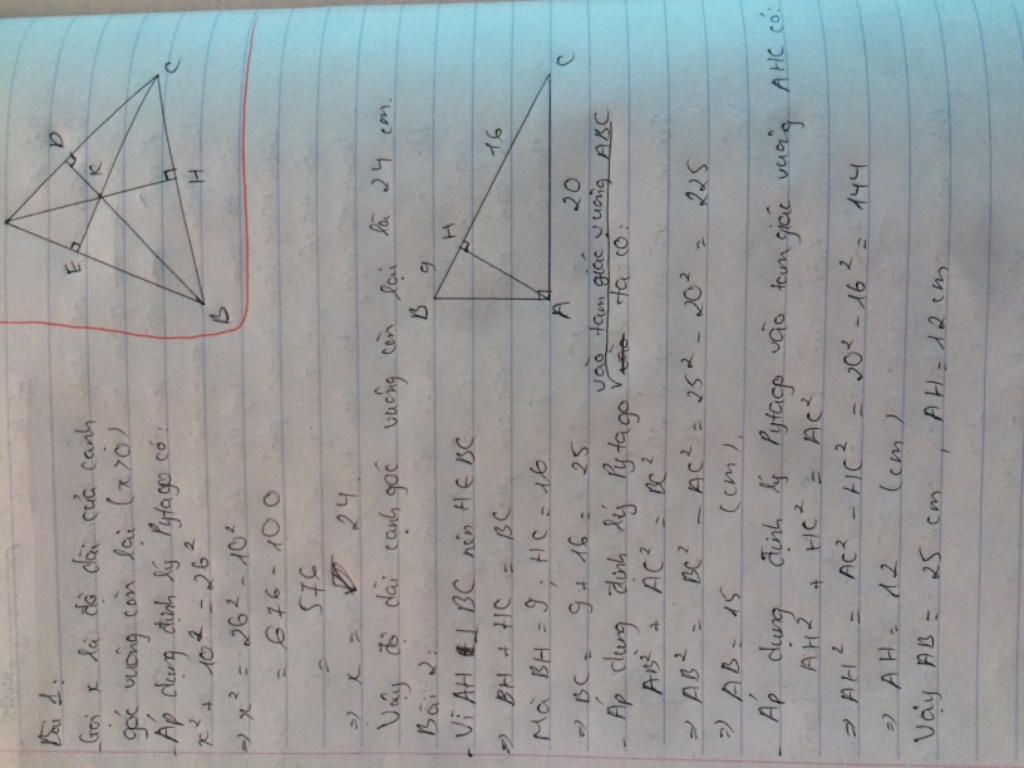 Bài 1:
Gọi x là độ dài của cạnh
góc vuông còn lại (x>0)
- Áp dụng định lý Pytago có:
x² + 10² = 26²
⇒ x² = 26² - 10²
= 676 - 100
= 576
⇒ x = 24
Vậy độ dài cạnh góc vuông còn lại là 24 cm.
E
D
K
C
H
B
Bài 2:
- Vì AH ⊥ BC nên H ∈ BC
⇒ BH + HC = BC
Mà BH = 9; HC = 16
⇒ BC = 9 + 16 = 25
B
9
H
16
C
A
20
vào tam giác vuông ABC
- Áp dụng định lý Pytago ta có:
AB² + AC² = BC²
⇒ AB² = BC² - AC² = 25² - 20² = 225
⇒ AB = 15 (cm).
- Áp dụng định lý Pytago vào tam giác vuông AHC có:
AH² + HC² = AC²
⇒ AH² = AC² - HC² = 20² - 16² = 144
⇒ AH = 12 (cm)
Vậy AB = 25 cm, AH = 12 cm